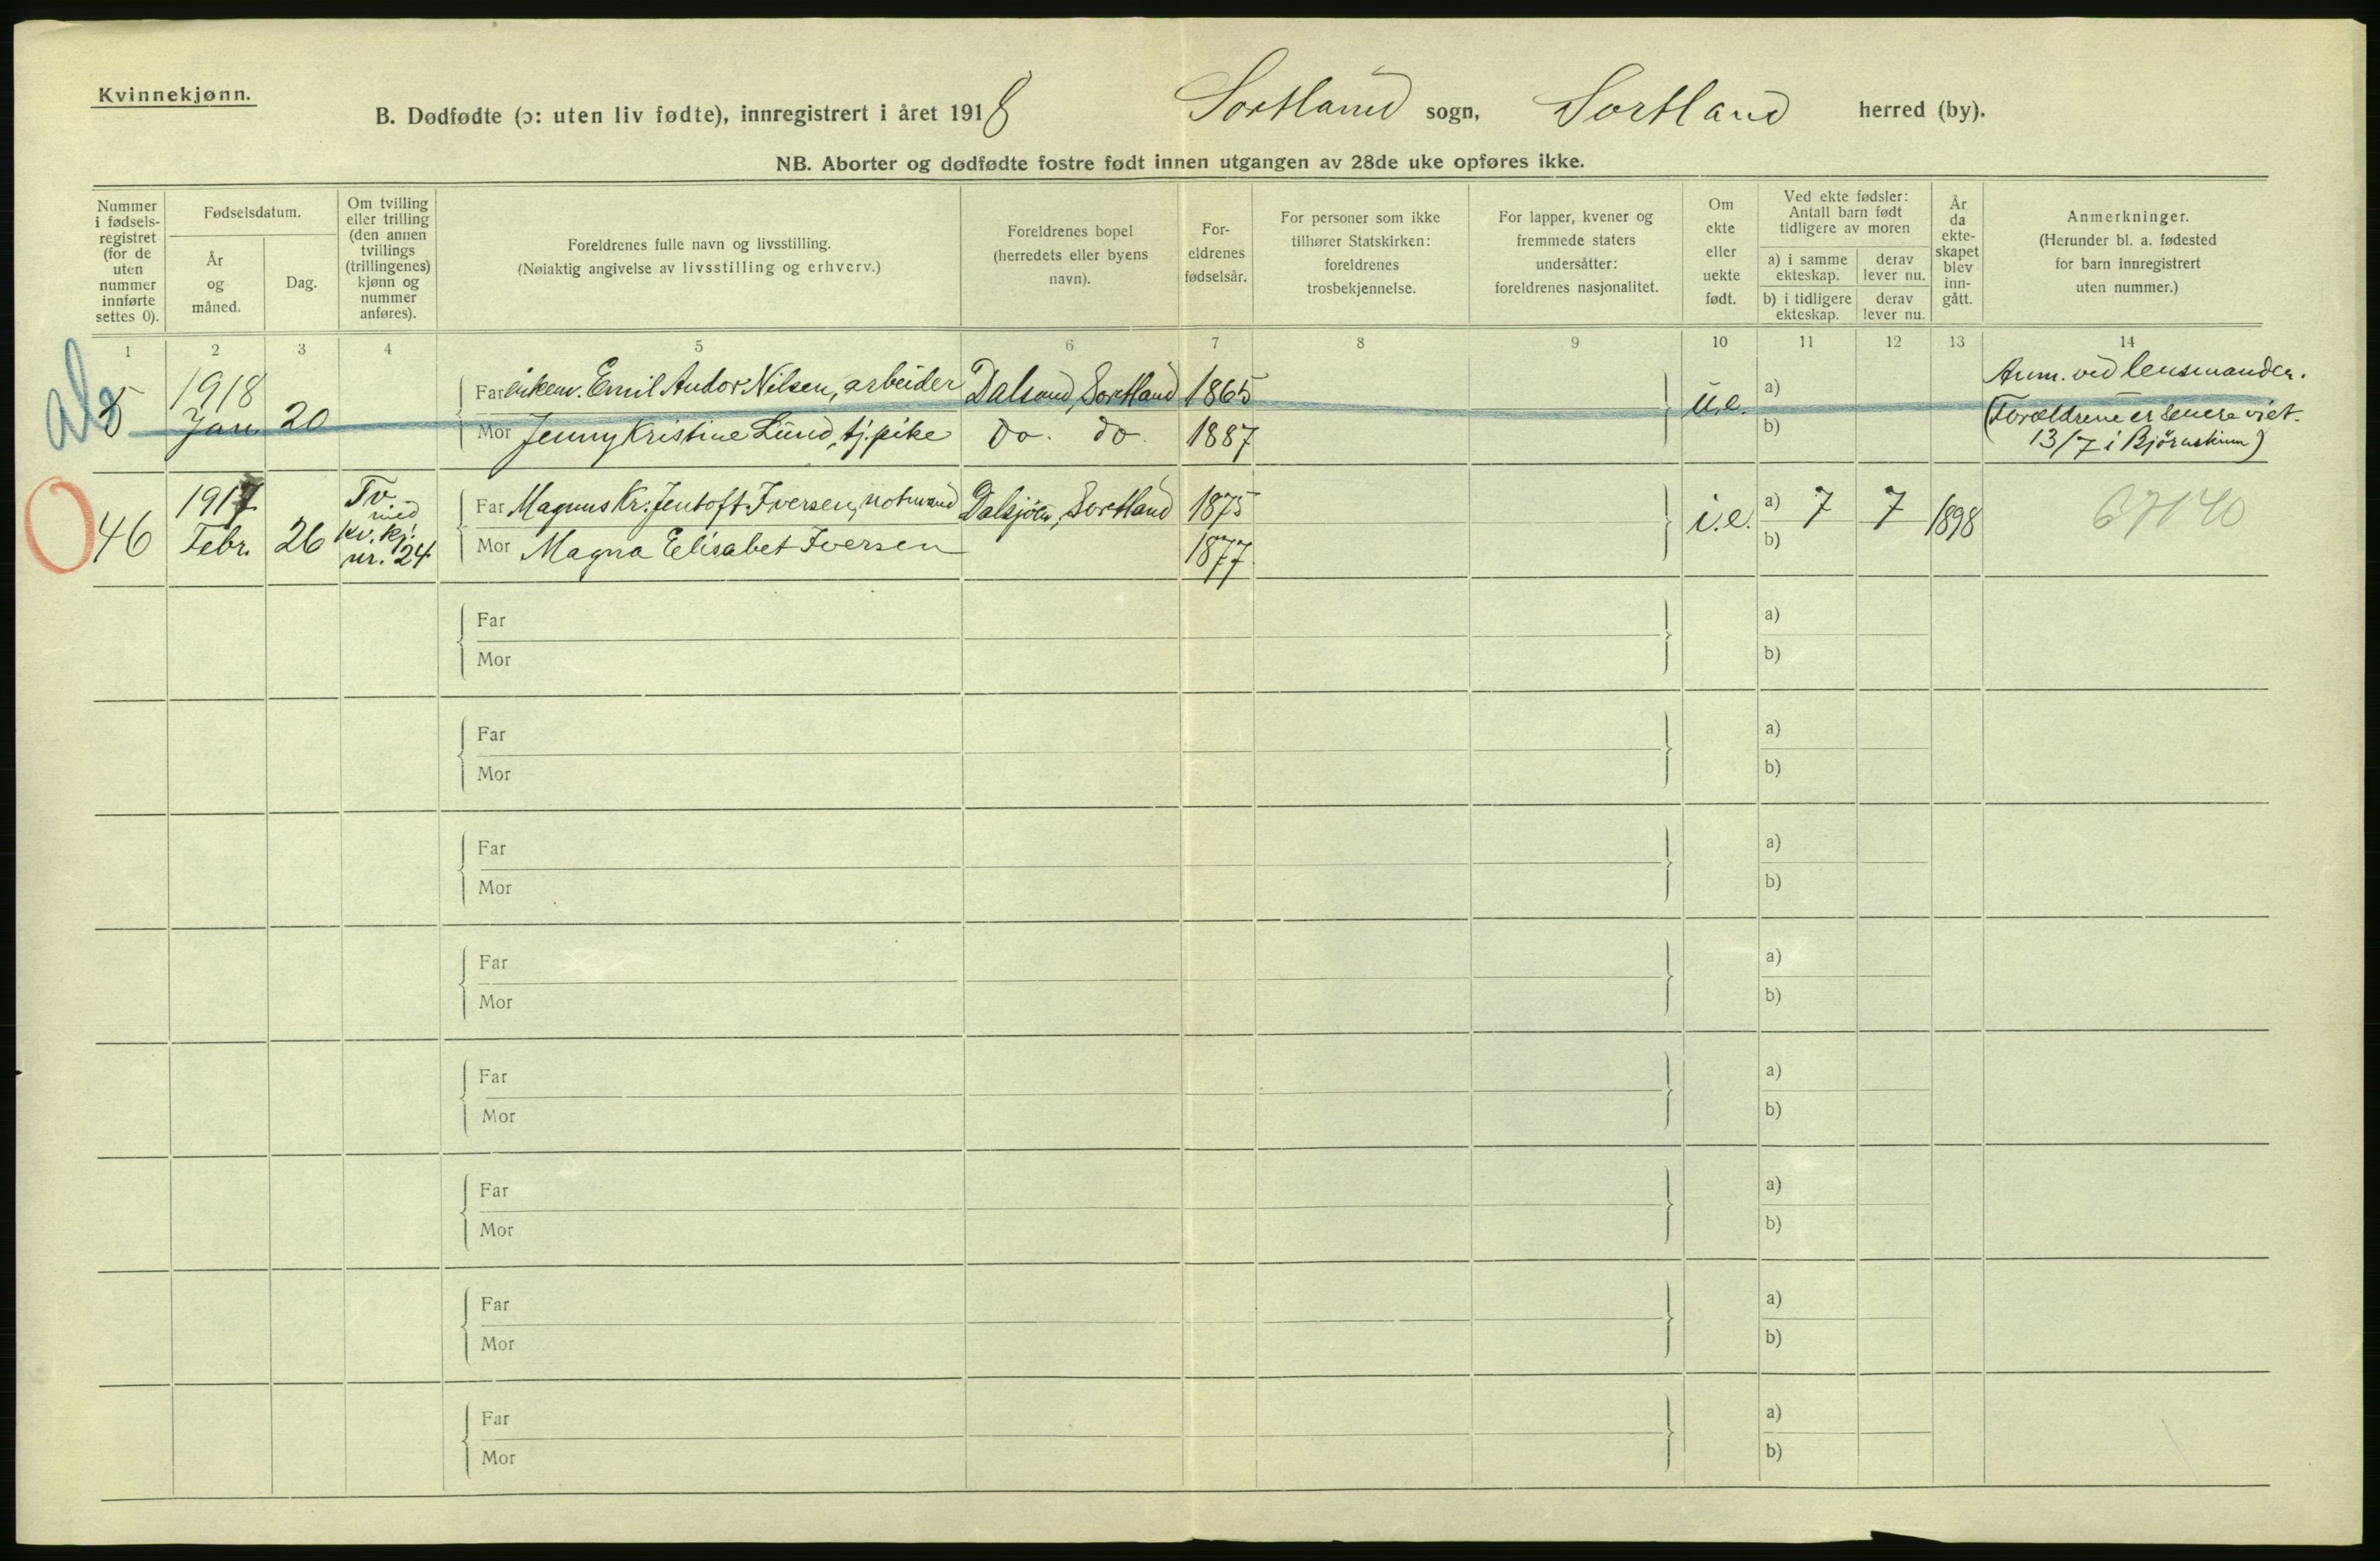 Kvinnekjønn.
B. Dødfødte (ɔ: uten liv fødte), innregistrert i året 1918 Sortland sogn, Sortland herred (by).
NB. Aborter og dødfødte fostre født innen utgangen av 28de uke opføres ikke.
Nummer
i fødsels-
registret
(for de
uten
nummer
innførte
settes 0).
Fødselsdatum.
År
og
måned.
Dag.
Om tvilling
eller trilling
(den annen
tvillings
(trillingenes)
kjønn og
nummer
anføres).
Foreldrenes fulle navn og livsstilling.
(Nøiaktig angivelse av livsstilling og erhverv.)
Foreldrenes bopel
(herredets eller byens
navn).
For-
eldrenes
fødselsår.
For personer som ikke
tilhører Statskirken:
foreldrenes
trosbekjennelse.
For lapper, kvener og
fremmede staters
undersåtter:
foreldrenes nasjonalitet.
Om
ekte
eller
uekte
født.
Ved ekte fødsler:
Antall barn født
tidligere av moren
a) i samme
ekteskap.
derav
lever nu.
b) i tidligere
ekteskap.
derav
lever nu.
År
da
ekte-
skapet
blev
inn-
gått.
Anmerkninger.
(Herunder bl. a. fødested
for barn innregistrert
uten nummer.)
1 2 3 4 5 6 7 8 9 10 11 12 13 14
5 1918 Jan. 20
Far enkem. Emil Andor Nilsen, arbeider Dalsand, Sortland 1865 u.e. a)
Mor Jenny Kristine Lund, tj. pike do. do. 1887 b)
Anm. ved lensmanden.
(Forældrene er senere viet
13/7 i Bjørnskinn)
46 1917 Febr. 26
Tv.
med
kv. kj.
nr. 24
Far Magnus Kr. Jentoft Iversen, notmand Dalsjøen, Sortland 1875 i.e. a) 7 7 1898 67140
Mor Magna Elisabet Iversen 1877 b)
Far a)
Mor b)
Far a)
Mor b)
Far a)
Mor b)
Far a)
Mor b)
Far a)
Mor b)
Far a)
Mor b)
Far a)
Mor b)
Far a)
Mor b)